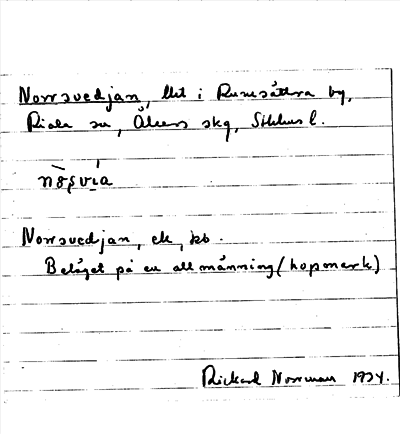 Norrsvedjan, lht i Rumsättra by,
Riala sn, Åkers skg, Sthlms l.
nò̤şvía
Norrsvedjan, ek, kb.
Beläget på en allmänning (hopmark)
Rickard Norrman 1934.